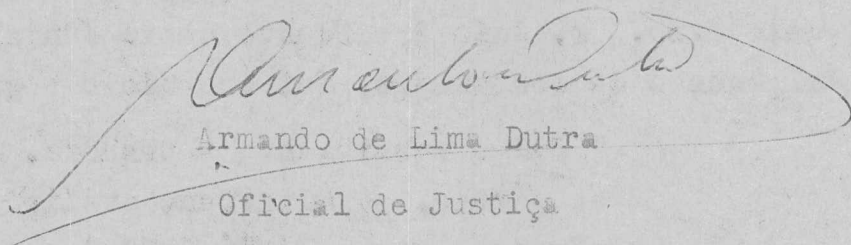 Armando Dutra
Armando de Lima Dutra
Oficial de Justiça